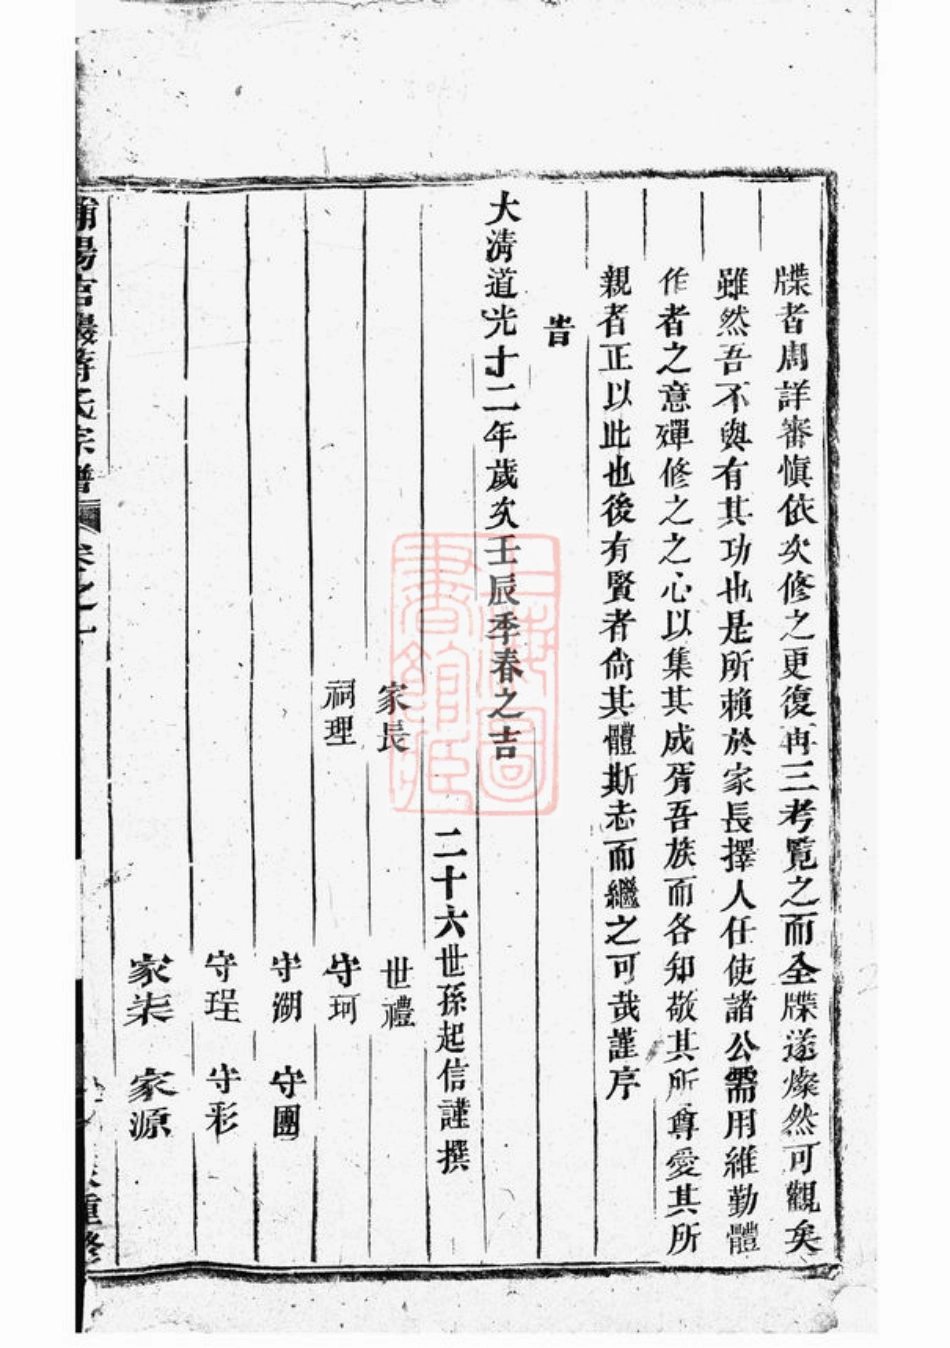 牒者周詳審慎依次修之更復再三考覧之而全牒遂燦然可觀矣
雖然吾不與有其功也是所賴於家長擇人任使諸公需用維勤體
作者之意殫修之之心以集其成胥吾族而各知敬其所尊愛其所
親者正以此也後有賢者尙其體斯志而繼之可哉謹序
旹
大淸道光十二年歲次壬辰季春之吉
二十六世孫起信謹撰
家長 世禮
祠理 守珂
守湖 守團
守珵 守彩
家柒 家源
浦陽 蔣氏宗譜 卷之一 重修
上海圖書館藏